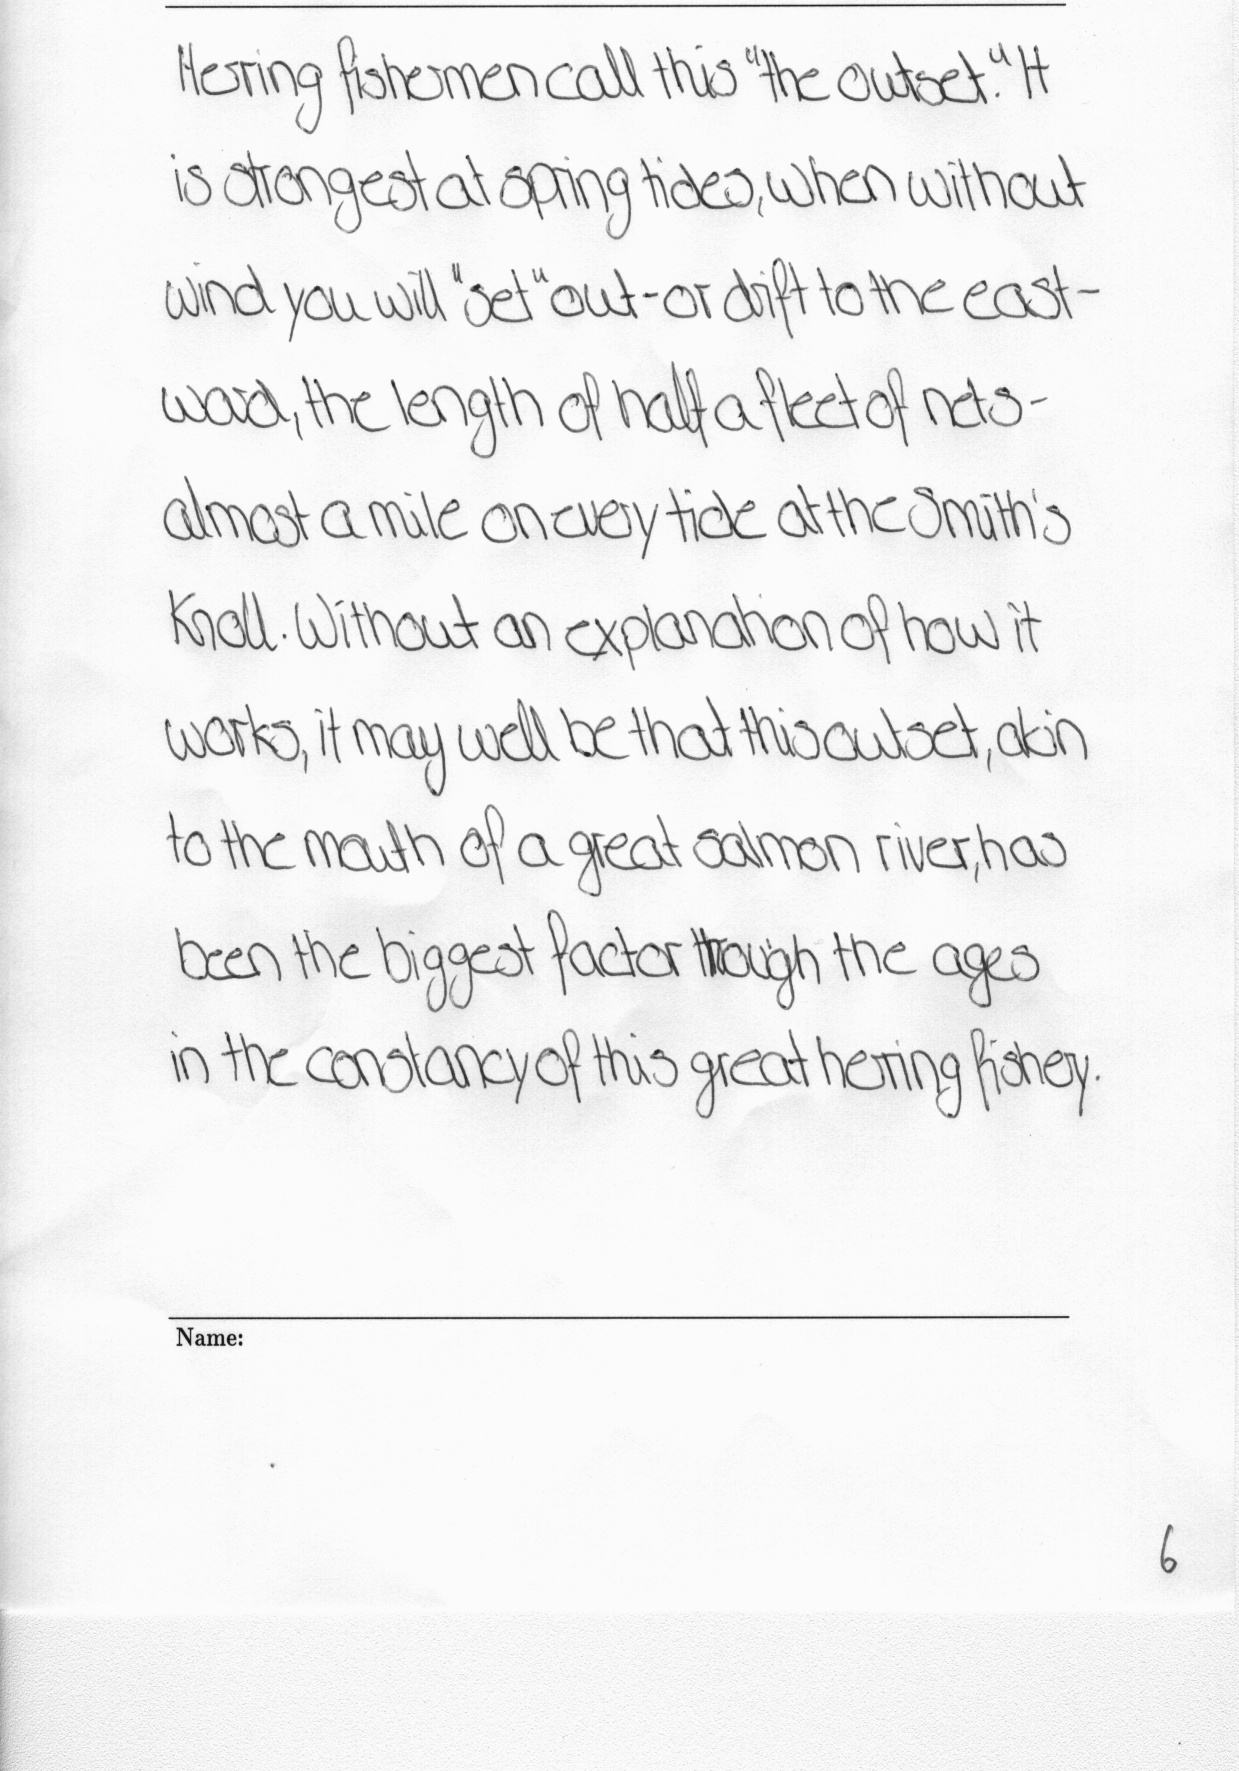 Herring fishermen call this "the outset." It
is strongest at spring tides, when without
wind you will "set" out - or drift to the east-
ward, the length of half a fleet of nets -
almost a mile on every tide at the Smith's
Knoll. Without an explanation of how it
works, it may well be that this outset, akin
to the mouth of a great salmon river, has
been the biggest factor through the ages
in the constancy of this great herring fishery.
Name:
6